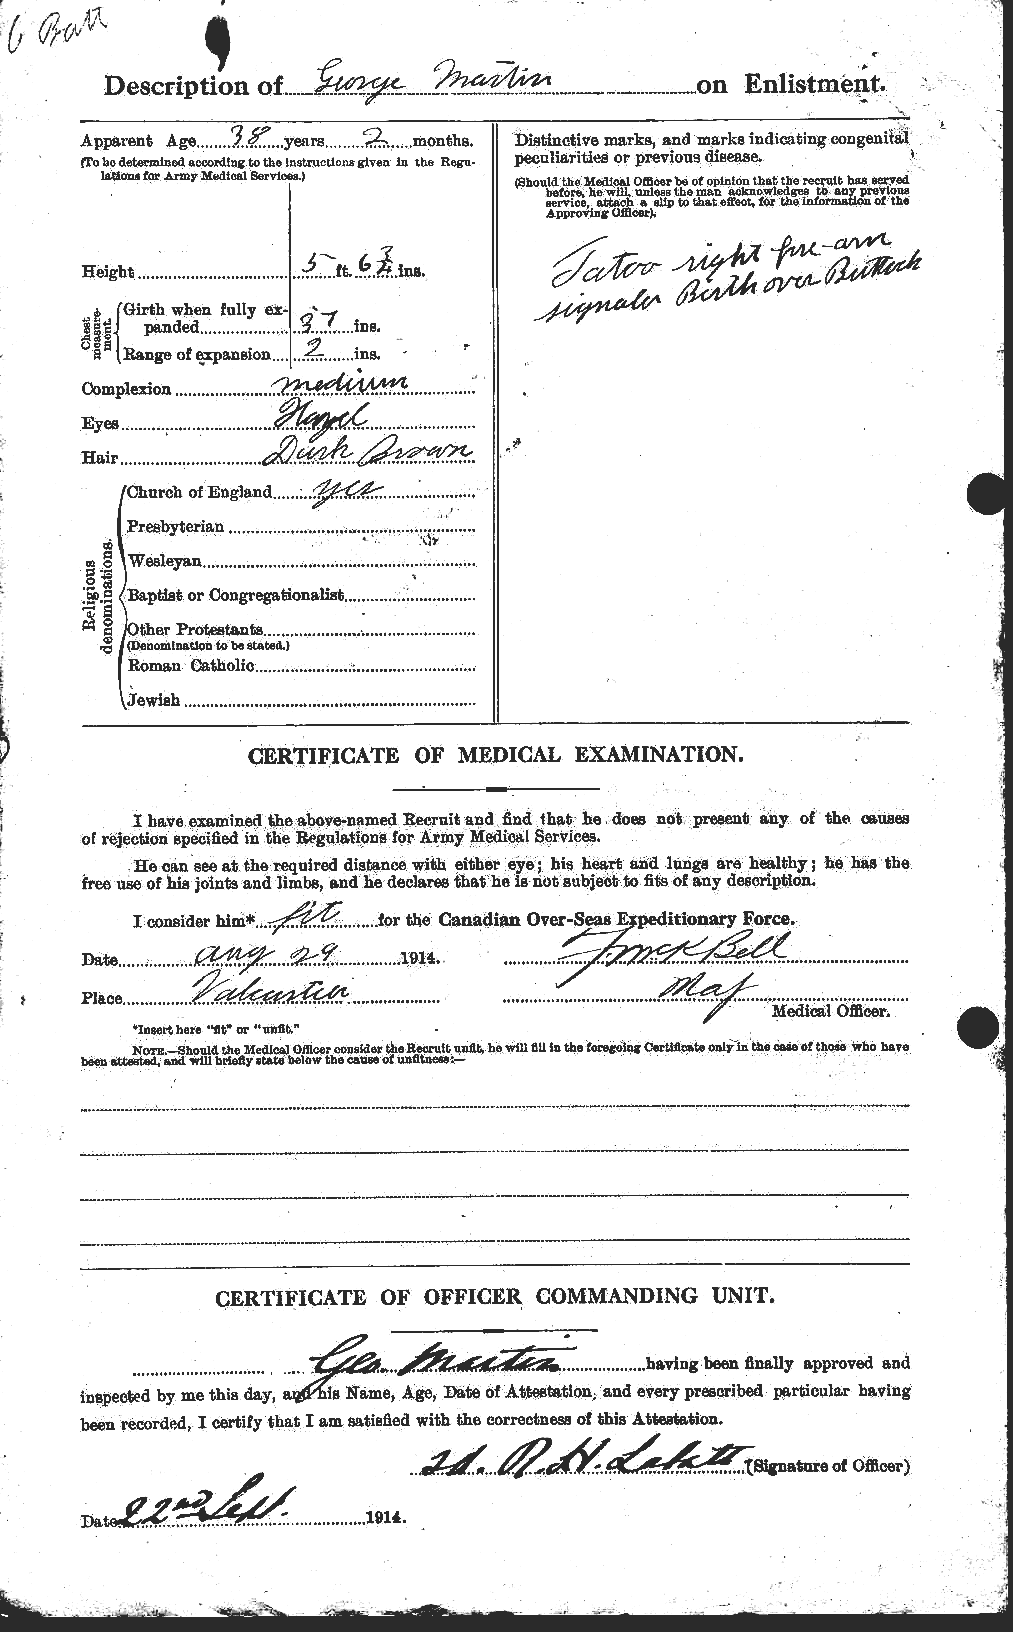 6 Batt
Description of George Martin on Enlistment.
Apparent Age 38 years 2 months.
(To be determined according to the instructions given in the Regu-
lations for Army Medical Services.)
Height 5 ft. 6 3/4 ins.
Chest measure-ment.
Girth when fully ex-
panded 37 ins.
Range of expansion 2 ins.
Complexion medium
Eyes Hazel
Hair Dark Brown
Religious denominations.
Church of England yes
Presbyterian
Wesleyan
Baptist or Congregationalist
Other Protestants
(Denomination to be stated.)
Roman Catholic
Jewish
Distinctive marks, and marks indicating congenital
peculiarities or previous disease.
(Should the Medical Officer be of opinion that the recruit has served
before, he will, unless the man acknowledges to any previous
service, attach a slip to that effect, for the information of the
Approving Officer).
Tatoo right fore-arm
signaler Birth over Buttock
CERTIFICATE OF MEDICAL EXAMINATION.
I have examined the above-named Recruit and find that he does not present any of the causes
of rejection specified in the Regulations for Army Medical Services.
He can see at the required distance with either eye; his heart and lungs are healthy; he has the
free use of his joints and limbs, and he declares that he is not subject to fits of any description.
I consider him* fit for the Canadian Over-Seas Expeditionary Force.
Date Aug 29 1914.
Bell
Place Valcartier
Maj
Medical Officer.
*Insert here "fit" or "unfit."
NOTE.—Should the Medical Officer consider the Recruit unfit, he will fill in the foregoing Certificate only in the case of those who have
been attested, and will briefly state below the cause of unfitness:—
CERTIFICATE OF OFFICER COMMANDING UNIT.
Geo Martin having been finally approved and
inspected by me this day, and his Name, Age, Date of Attestation, and every prescribed particular having
been recorded, I certify that I am satisfied with the correctness of this Attestation.
Sd. R. H. Labatt (Signature of Officer)
Date 22nd Sept. 1914.